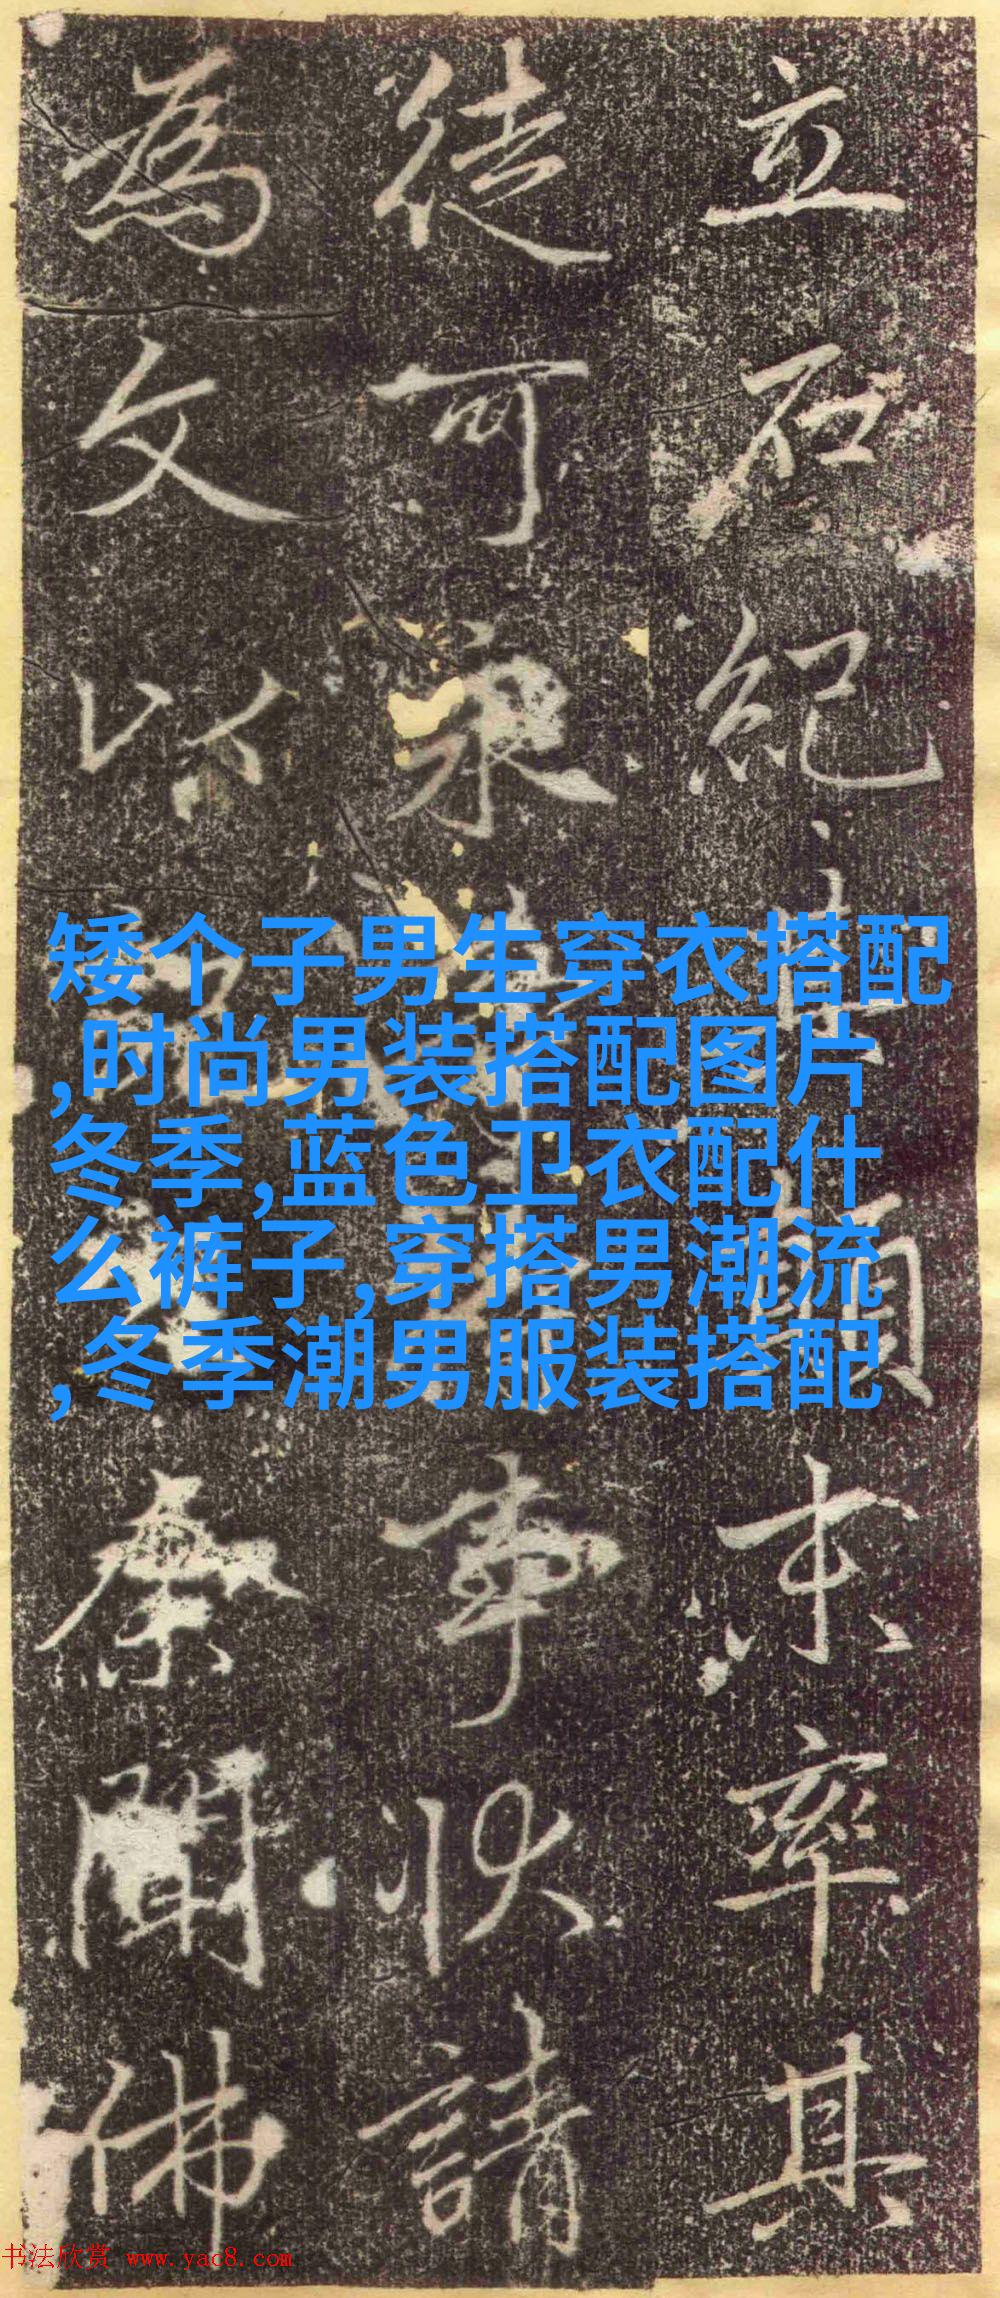 立石紀末率其
徒可永事狀請
為文以聞佛
矮个子男生穿衣搭配
,时尚男装搭配图片
冬季,蓝色卫衣配什
么裤子,穿搭男潮流
,冬季潮男服装搭配
书法欣赏 www.yac8.com